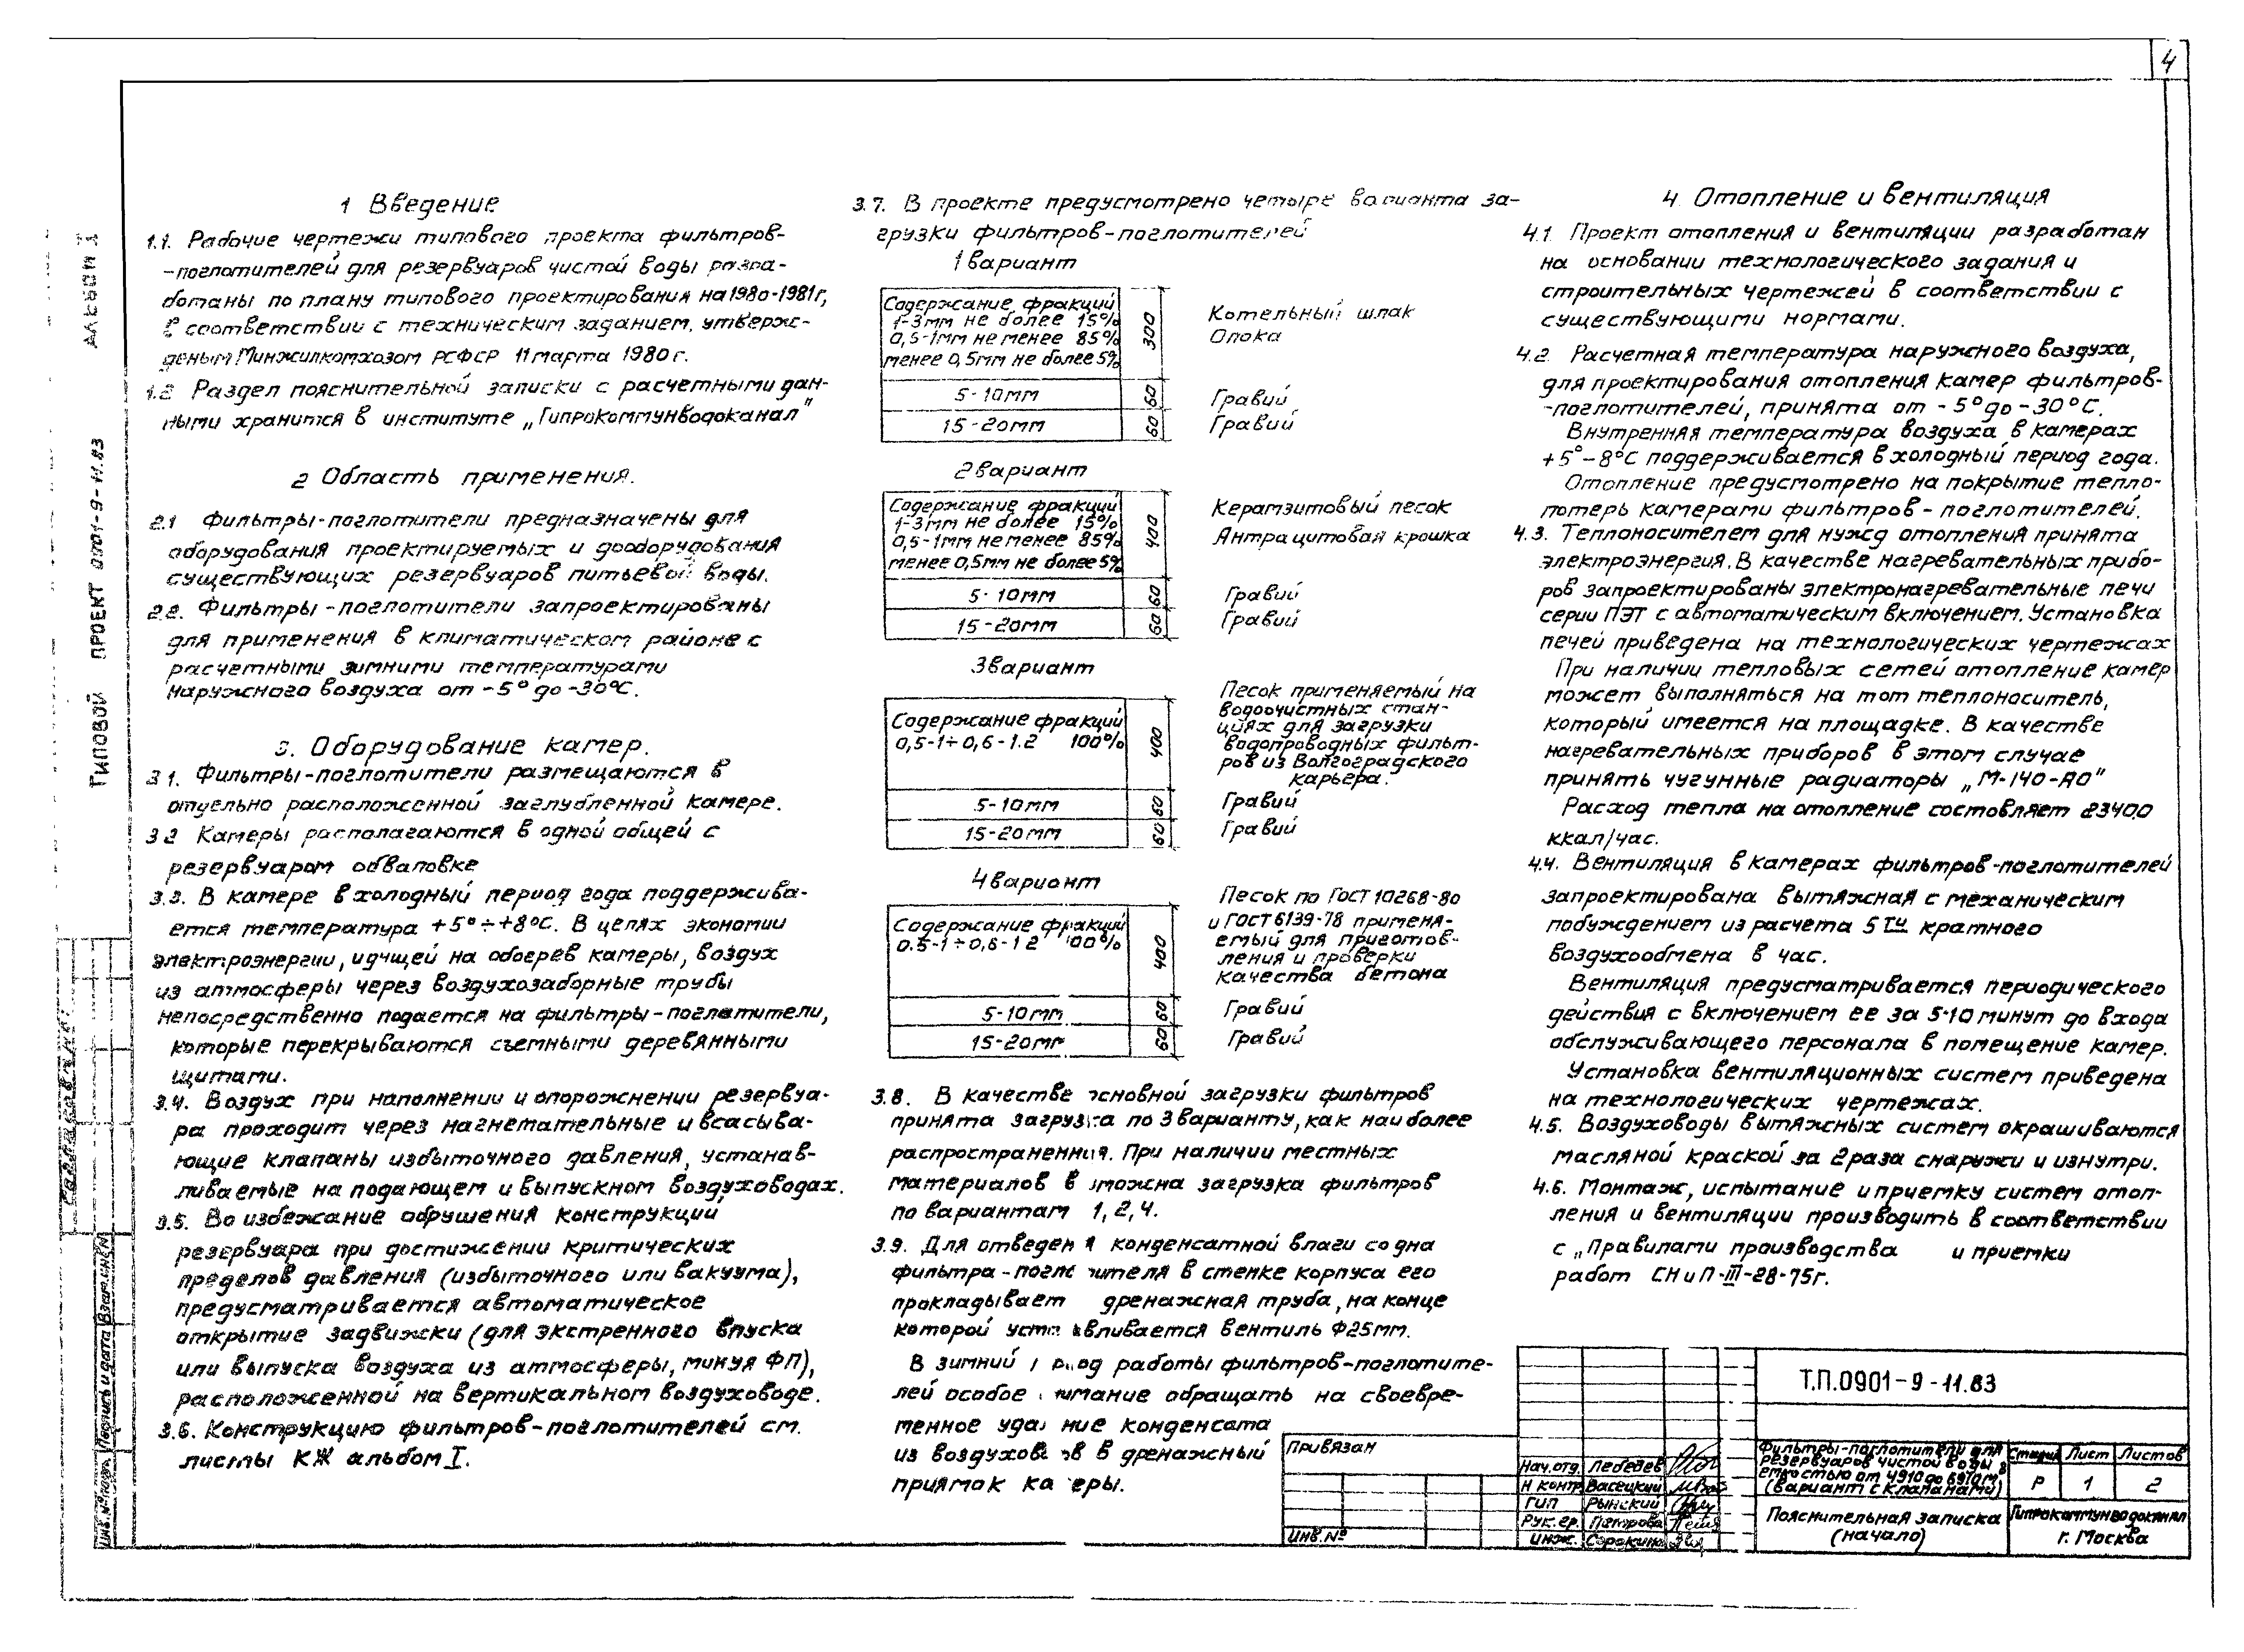 4
Альбом I
Типовой проект 0901-9-11.83
1 Введение
1.1. Рабочие чертежи типового проекта фильтров-
-поглотителей для резервуаров чистой воды разра-
ботаны по плану типового проектирования на 1980-1981г,
в соответствии с техническим заданием, утверж-
деным Минжилкомхозом РСФСР 11 марта 1980 г.
1.2 Раздел пояснительной записки с расчетными дан-
ными хранится в институте „Гипрокоммунводоканал"
2 Область применения.
2.1 Фильтры-поглотители предназначены для
оборудования проектируемых и дооборудования
существующих резервуаров питьевой воды.
2.2. Фильтры-поглотители запроектированы
для применения в климатическом районе с
расчетными зимними температурами
наружного воздуха от -5° до -30°С.
3. Оборудование камер.
3.1. Фильтры-поглотители размещаются в
отдельно расположенной заглубленной камере.
3.2 Камеры располагаются в одной общей с
резервуаром обваловке
3.3. В камере в холодный период года поддержива-
ется температура +5°÷+8°С. В целях экономии
электроэнергии, идущей на обогрев камеры, воздух
из атмосферы через воздухозаборные трубы
непосредственно подается на фильтры-поглотители,
которые перекрываются съемными деревянными
щитами.
3.4. Воздух при наполнении и опорожнении резервуа-
ра проходит через нагнетательные и всасыва-
ющие клапаны избыточного давления, устанав-
ливаемые на подающем и выпускном воздуховодах.
3.5. Во избежание обрушения конструкций
резервуара при достижении критических
пределов давления (избыточного или вакуума),
предусматривается автоматическое
открытие задвижки (для экстренного впуска
или выпуска воздуха из атмосферы, минуя ФП),
расположенной на вертикальном воздуховоде.
3.6. Конструкцию фильтров-поглотителей см.
листы КЖ альбом I.
3.7. В проекте предусмотрено четыре варианта за-
грузки фильтров-поглотителей
1 вариант
Содержание фракций
1-3мм не более 15%
0,5-1мм не менее 85%
менее 0,5мм не более 5%
300
Котельный шлак
Опока
5-10мм 60 Гравий
15-20мм 60 Гравий
2 вариант
Содержание фракций
1-3мм не более 15%
0,5-1мм не менее 85%
менее 0,5мм не более 5%
400
Керамзитовый песок
Антрацитовая крошка
5-10мм 60 Гравий
15-20мм 60 Гравий
3 вариант
Содержание фракций
0,5-1÷0,6-1.2 100%
400
Песок применяемый на
водоочистных стан-
циях для загрузки
водопроводных фильт-
ров из Волгоградского
карьера.
5-10мм 60 Гравий
15-20мм 60 Гравий
4 вариант
Содержание фракций
0.5-1÷0,6-1 2 100%
400
Песок по ГОСТ 10268-80
и ГОСТ 6139-78 применя-
емый для приготов-
ления и проверки
качества бетона
5-10мм 60 Гравий
15-20мм 60 Гравий
3.8. В качестве основной загрузки фильтров
принята загрузка по 3 варианту, как наиболее
распространенная. При наличии местных
материалов возможна загрузка фильтров
по вариантам 1, 2, 4.
3.9. Для отведения конденсатной влаги со дна
фильтра-поглотителя в стенке корпуса его
прокладывает дренажная труба, на конце
которой устанавливается вентиль Ф25мм.
В зимний период работы фильтров-поглотите-
лей особое внимание обращать на своевре-
менное удаление конденсата
из воздуховодов в дренажный
приямок камеры.
4. Отопление и вентиляция
4.1 Проект отопления и вентиляции разработан
на основании технологического задания и
строительных чертежей в соответствии с
существующими нормами.
4.2. Расчетная температура наружного воздуха,
для проектирования отопления камер фильтров-
-поглотителей, принята от -5° до -30°С.
Внутренняя температура воздуха в камерах
+5°-8°С поддерживается в холодный период года.
Отопление предусмотрено на покрытие тепло-
потерь камерами фильтров-поглотителей.
4.3. Теплоносителем для нужд отопления принята
электроэнергия. В качестве нагревательных прибо-
ров запроектированы электронагревательные печи
серии ПЭТ с автоматическим включением. Установка
печей приведена на технологических чертежах
При наличии тепловых сетей отопление камер
может выполняться на том теплоноситель,
который имеется на площадке. В качестве
нагревательных приборов в этом случае
принять чугунные радиаторы „М-140-АО"
Расход тепла на отопление составляет 23400
ккал/час.
4.4. Вентиляция в камерах фильтров-поглотителей
запроектирована вытяжная с механическим
побуждением из расчета 5ти кратного
воздухообмена в час.
Вентиляция предусматривается периодического
действия с включением ее за 5-10 минут до входа
обслуживающего персонала в помещение камер.
Установка вентиляционных систем приведена
на технологических чертежах.
4.5. Воздуховоды вытяжных систем окрашиваются
масляной краской за 2 раза снаружи и изнутри.
4.6. Монтаж, испытание и приемку систем отоп-
ления и вентиляции производить в соответствии
с „Правилами производства и приемки
работ СНиП-III-28-75г.
Согласовано:
Инв.№ подл. Подпись и дата Взам.инв.№
Привязан
Инв.№
Т.П.0901-9-11.83
Нач.отд. Лебедев
Н контр Васецкий
ГИП Рынский
Рук.гр. Петрова
Инж. Сорокина
Фильтры-поглотители для
резервуаров чистой воды
емкостью от 4910 до 6970м3
(вариант с клапанами)
Стадия Лист Листов
Р 1 2
Пояснительная записка
(начало)
Гипрокоммунводоканал
г. Москва